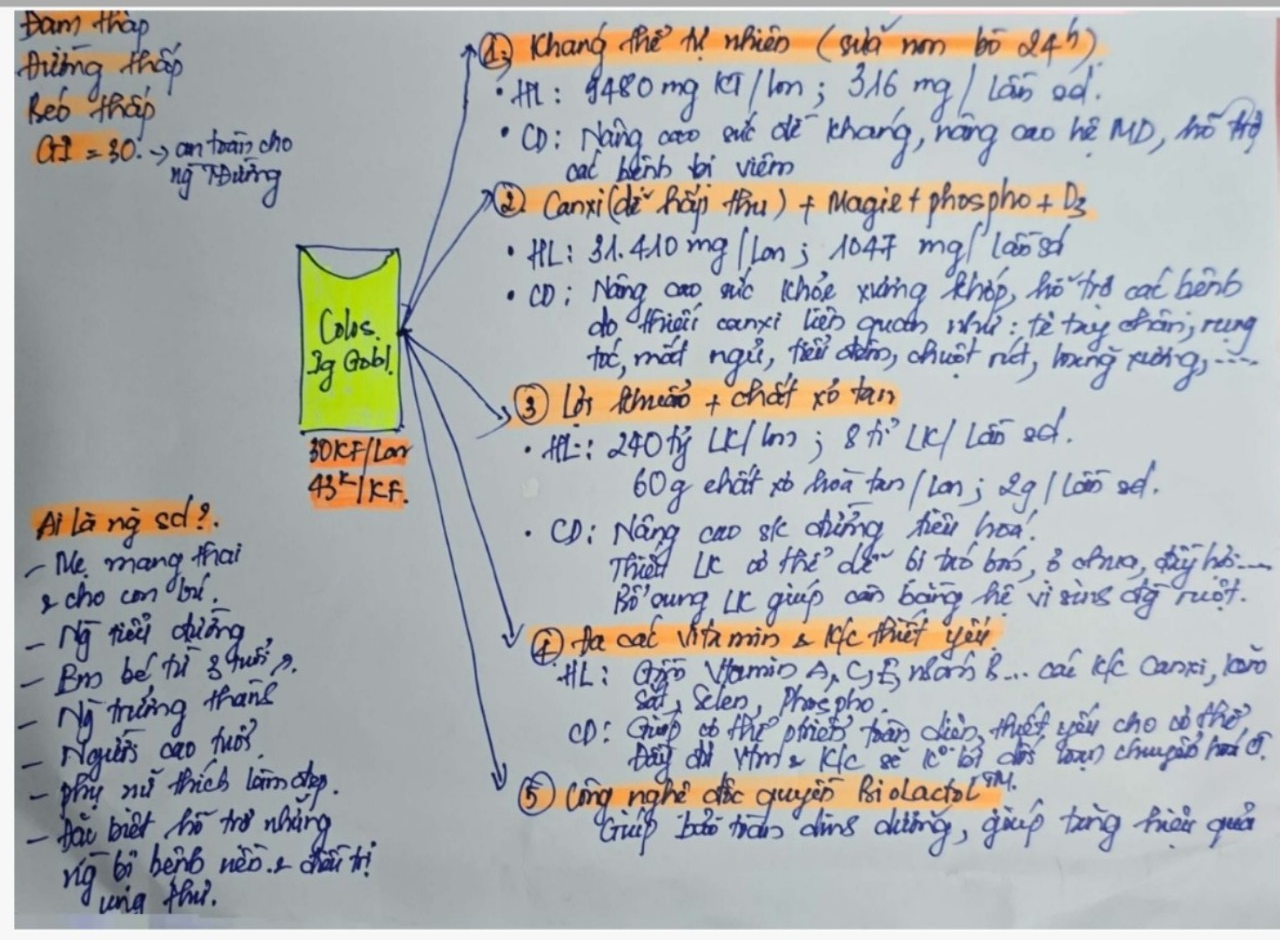 Đạm thấp
Đường thấp
Béo thấp
GI = 30. → an toàn cho
ng TĐường
Colos.
30KF/Lon
43ᴷ/KF.
Ai là ng sd?.
- Mẹ mang thai
& cho con bú.
- Ng tiểu đường
- Em bé từ 3 tuổi
- Ng trưởng thành
- Người cao tuổi.
- phụ nữ thích làm đẹp.
- Đặc biệt hỗ trợ những
ng bị bệnh nền & điều trị
ung thư.
① Kháng thể tự nhiên (sữa non bò 24h).
• HL: 9480 mg KT/lon; 316 mg/ Lần sd.
• CD: Nâng cao sức đề kháng, nâng cao hệ MD, hỗ trợ
các bệnh bị viêm
② Canxi (dễ hấp thu) + Magie + phospho + D3
• HL: 31.410 mg/Lon; 1047 mg/ Lần sd
• CD: Nâng cao sức khỏe xương khớp, hỗ trợ các bệnh
do thiếu canxi liên quan như: tê tay chân, rụng
tóc, mất ngủ, tiểu đêm, chuột rút, loãng xương,....
③ Lợi khuẩn + chất xơ tan
• HL: 240 tỷ LK/lon; 8 tỉ LK/ Lần sd.
60g chất xơ hoà tan/Lon; 2g/Lần sd.
• CD: Nâng cao sk đường tiêu hoá.
Thiếu LK có thể dễ bị táo bón, ợ chua, đầy hơi....
Bổ sung LK giúp cân bằng hệ vi sinh đg ruột.
④ Đa các Vitamin & K/c thiết yếu
HL: Gồm Vitamin A, C, E, nhóm B... các K/c Canxi,
Sắt, Selen, Phospho.
CD: Giúp cơ thể phát triển toàn diện, thiết yếu cho cơ thể
Đầy đủ Vtm & K/c sẽ K° bị rối loạn chuyển hoá
⑤ Công nghệ độc quyền BioLactol™.
Giúp bảo toàn dinh dưỡng, giúp tăng hiệu quả